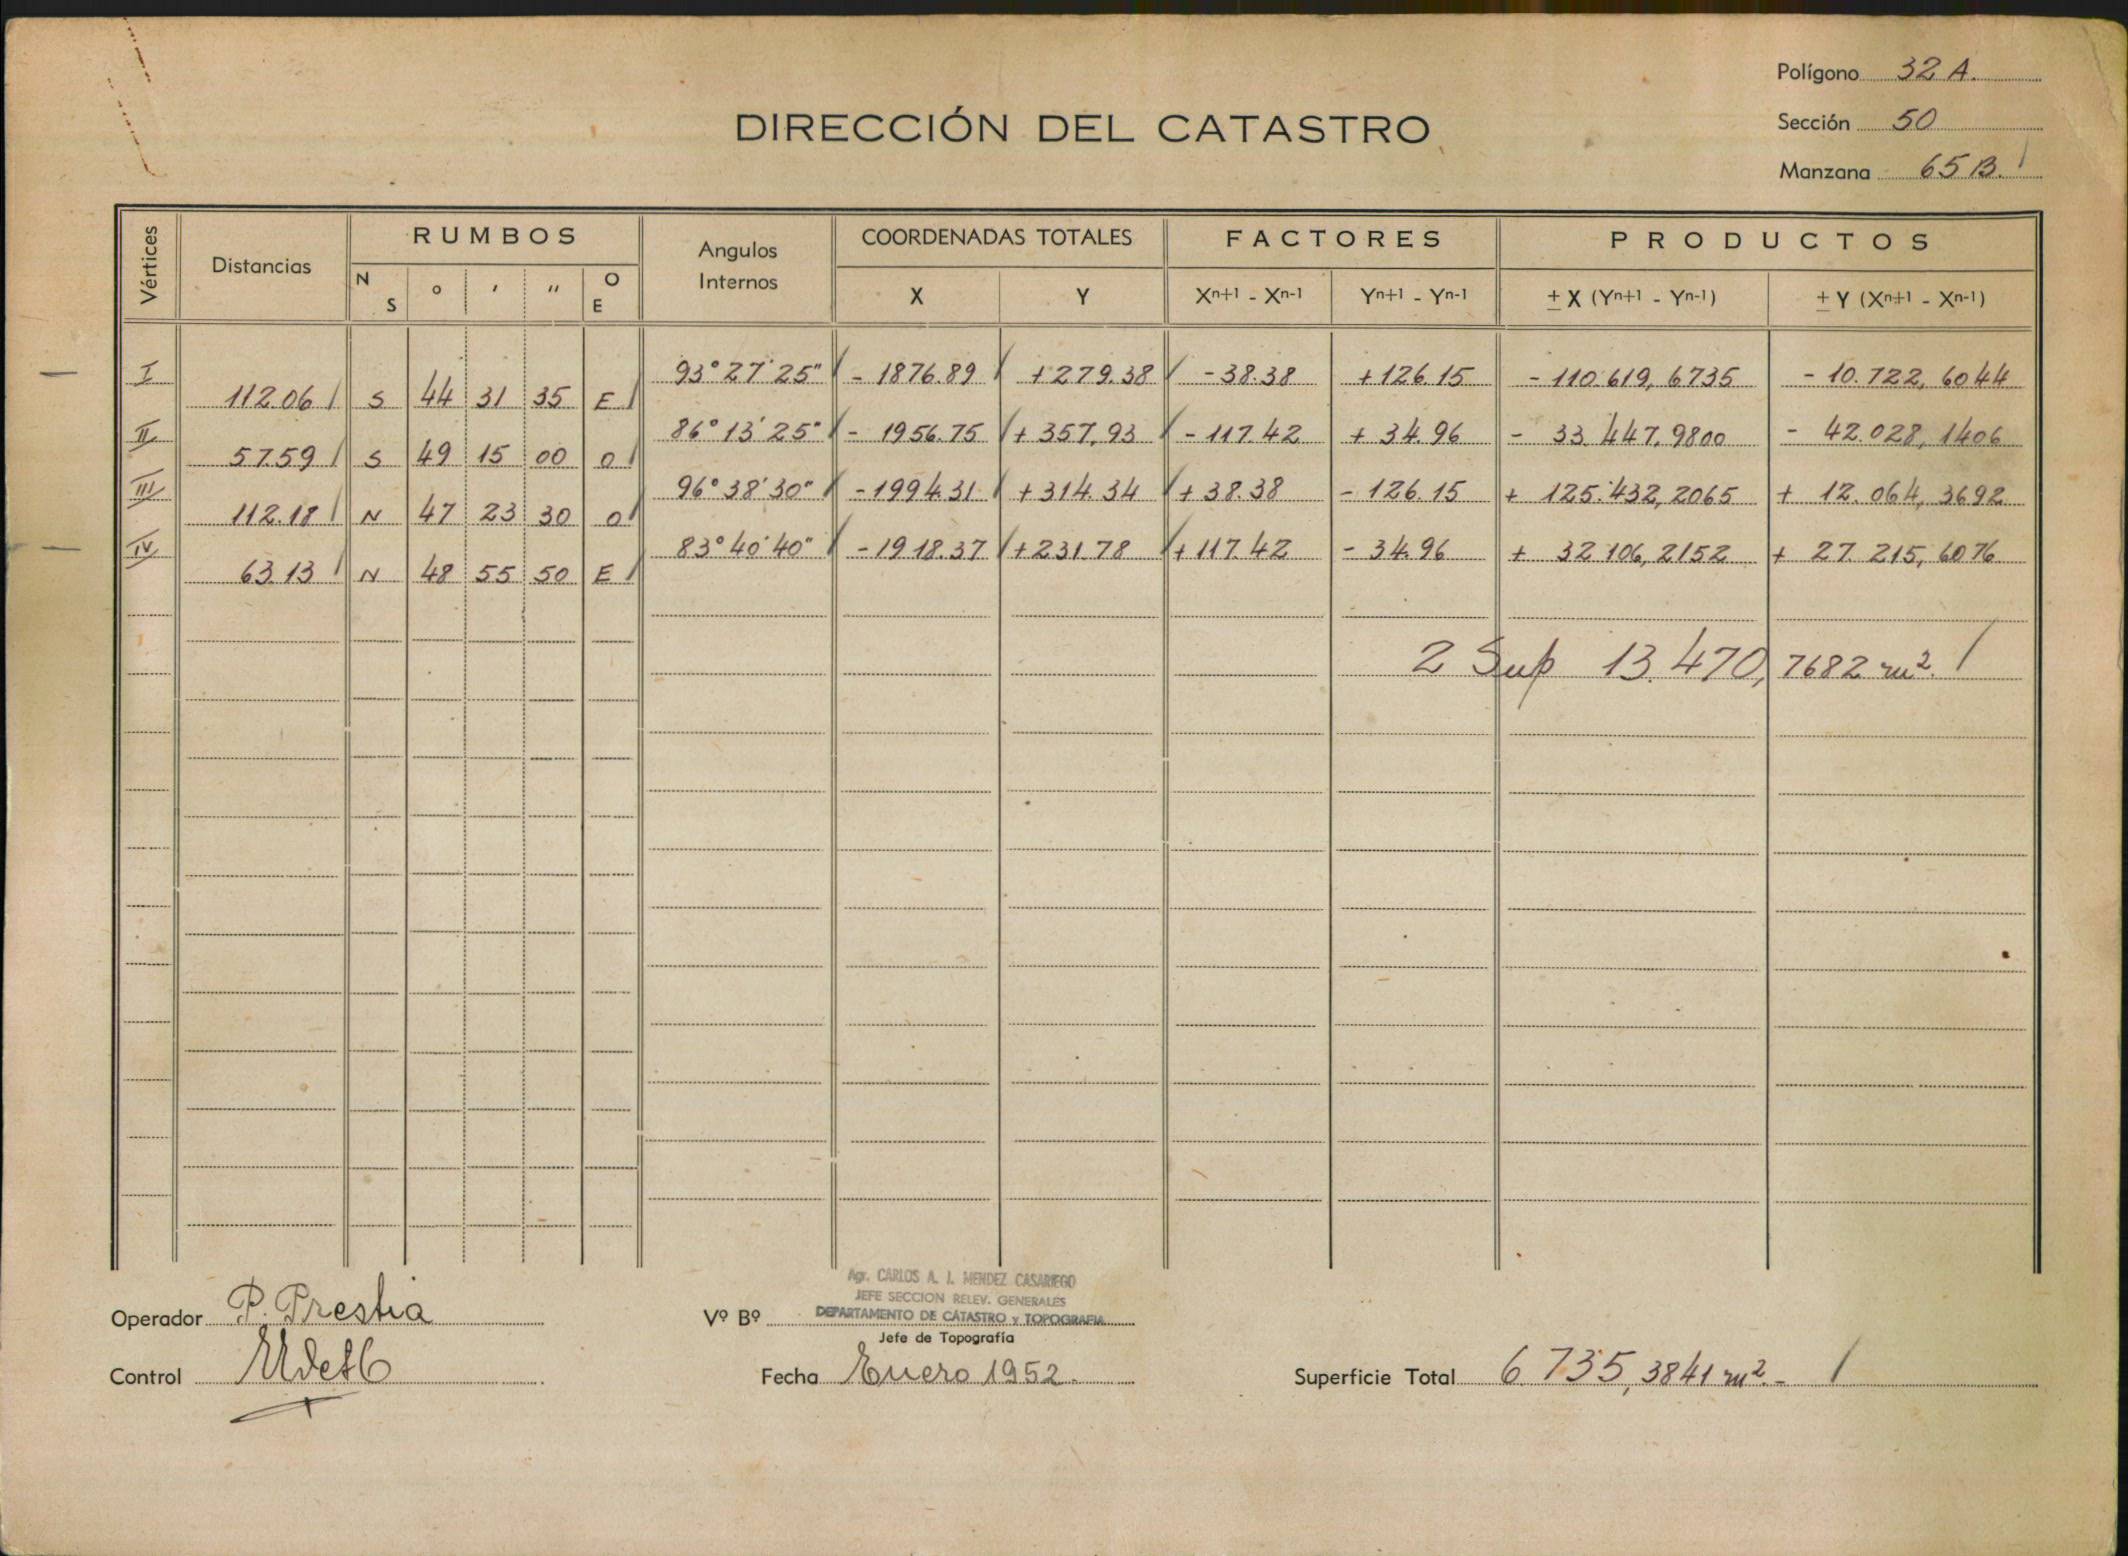 Polígono 32 A.
Sección 50
Manzana 65 B.
DIRECCIÓN DEL CATASTRO
Vértices Distancias RUMBOS Angulos Internos COORDENADAS TOTALES FACTORES PRODUCTOS
N S ° ' " O E X Y Xn+1 - Xn-1 Yn+1 - Yn-1 ± X (Yn+1 - Yn-1) ± Y (Xn+1 - Xn-1)
I 93° 27' 25" - 1876.89 + 279.38 - 38.38 + 126.15 - 110.619,6735 - 10.722,6044
112.06 S 44 31 35 E
II 86° 13' 25" - 1956.75 + 357.93 - 117.42 + 34.96 - 33.447,9800 - 42.028,1406
57.59 S 49 15 00 O
III 96° 38' 30" - 1994.31 + 314.34 + 38.38 - 126.15 + 125.432,2065 + 12.064,3692
112.18 N 47 23 30 O
IV 83° 40' 40" - 1918.37 + 231.78 + 117.42 - 34.96 + 32 106,2152 + 27.215,6076
63.13 N 48 55 50 E
2 Sup 13.470,7682 m2.
Agr. CARLOS A. J. MENDEZ CASARIEGO
JEFE SECCION RELEV. GENERALES
DEPARTAMENTO DE CATASTRO y TOPOGRAFIA
Operador P. Prestia Vº Bº
Jefe de Topografía
Control Fecha Enero 1952. Superficie Total 6.735,3841 m2.-